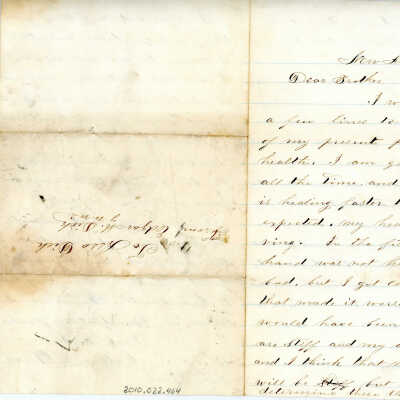 New
Dear Brother
I w
a few lines to
of my present p
health. I am g
all the time and
is healing faster t
expected. my hea
ving. In the fi
hand was not h
bad, but I got co
that made it wors
would have been
are stiff and my
and I think that
will be stiff but
determine then th
To
From Edgar
2010.022.464